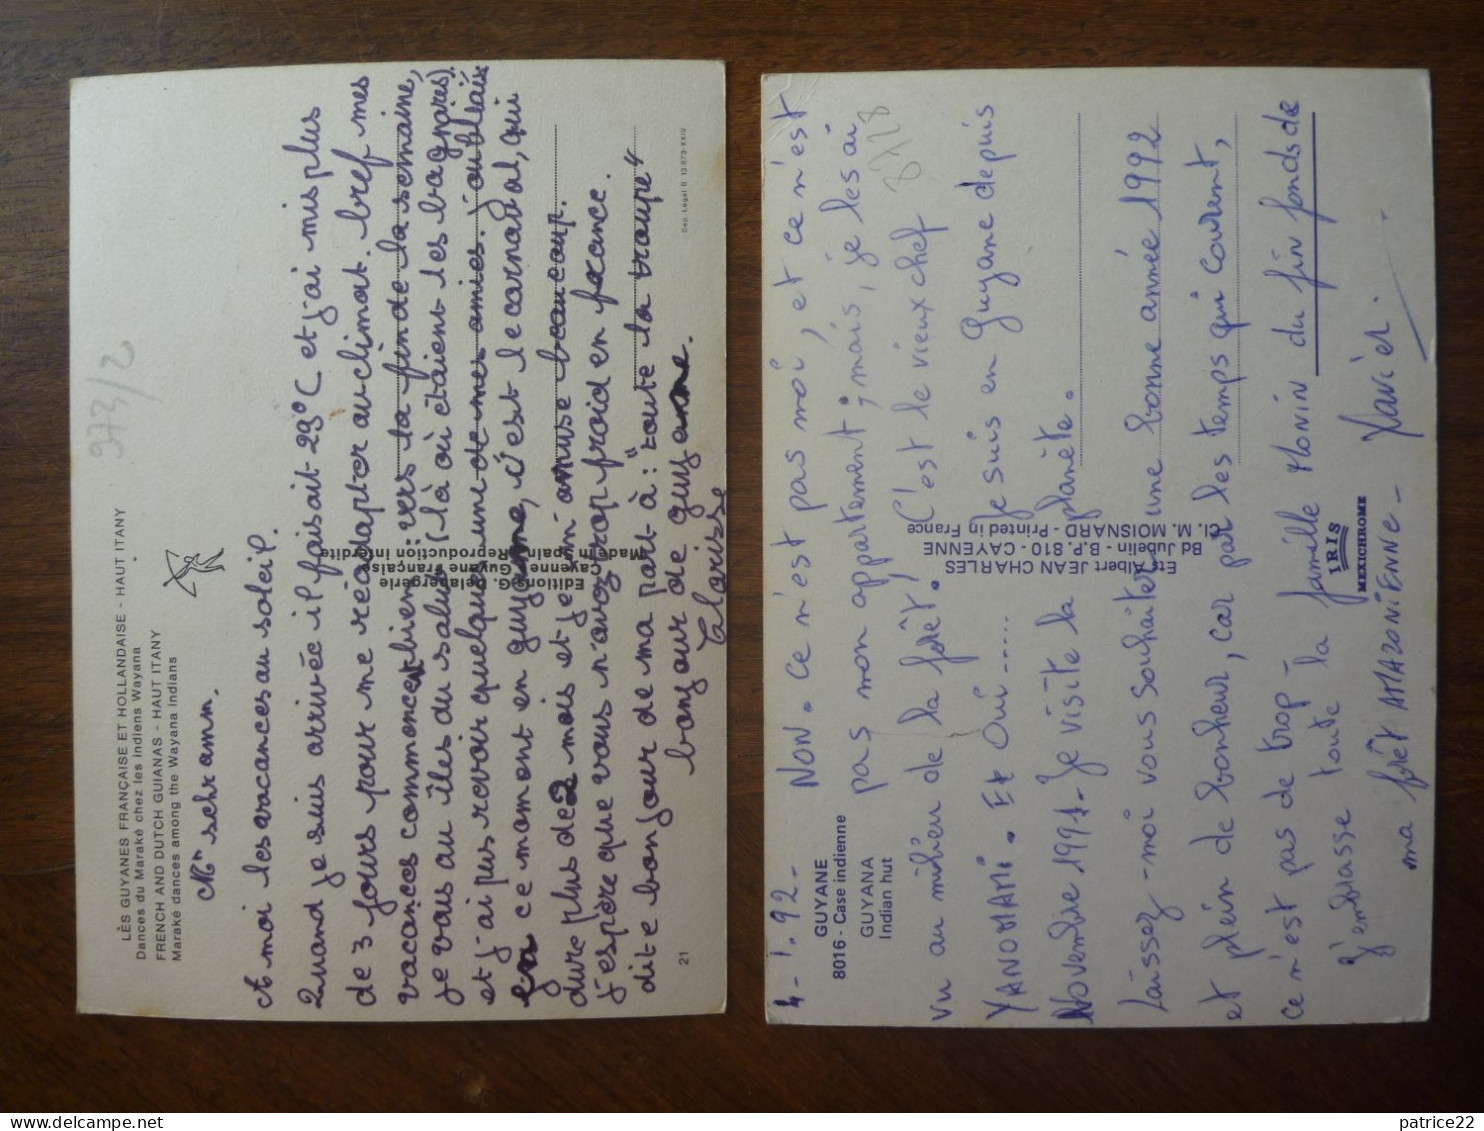 LES GUYANES FRANÇAISE ET HOLLANDAISE - HAUT ITANY
Dances du Maraké chez les indiens Wayana
FRENCH AND DUTCH GUIANAS - HAUT ITANY
Maraké dances among the Wayana indians
973/2
A moi les vacances au soleil.
Quand je suis arrivée il faisait 29°C et j'ai mis plus
de 3 jours pour me réadapter au climat. bref mes
vacances commencent bien: vers la fin de la semaine,
je vais au îles du salut (là où étaient les bagnares)
et j'ai pus revoir quelqu'une de mes amies. j'oubliais
en ce moment en guyane, c'est le carnaval, qui
dure plus de 2 mois et je m'amuse beaucoup.
j'espère que vous n'avez trop froid en france.
dite bonjour de ma part à: "toute la troupe"
bonjour de guyane.
Clarisse
Edition: G. Delabergerie
Cayenne Guyane Française
Made in Spain Reproduction Interdite
21
Dep. Legal B. 13.873-XXIV
4-1.92-
GUYANE
8016 - Case indienne
GUYANA
Indian hut
NON. Ce n'est pas moi, et ce n'est
pas mon appartement; mais, je les ai
vu au milieu de la forêt! C'est le vieux chef
YANOMAMI. Et Oui..... Je suis en Guyane depuis
Novembre 1991. Je visite la planète.
Laissez-moi vous souhaiter une bonne année 1992
et plein de bonheur, car par les temps qui courent,
ce n'est pas de trop -
J'embrasse toute la famille MONIN du fin fonds de
ma forêt AMAZONIENNE -
Xavier.
8718
Ets Albert JEAN CHARLES
Bd Jubelin - B.P. 810 - CAYENNE
Cl. M. MOISNARD - Printed in France
IRIS
MEXICHROME
patrice22